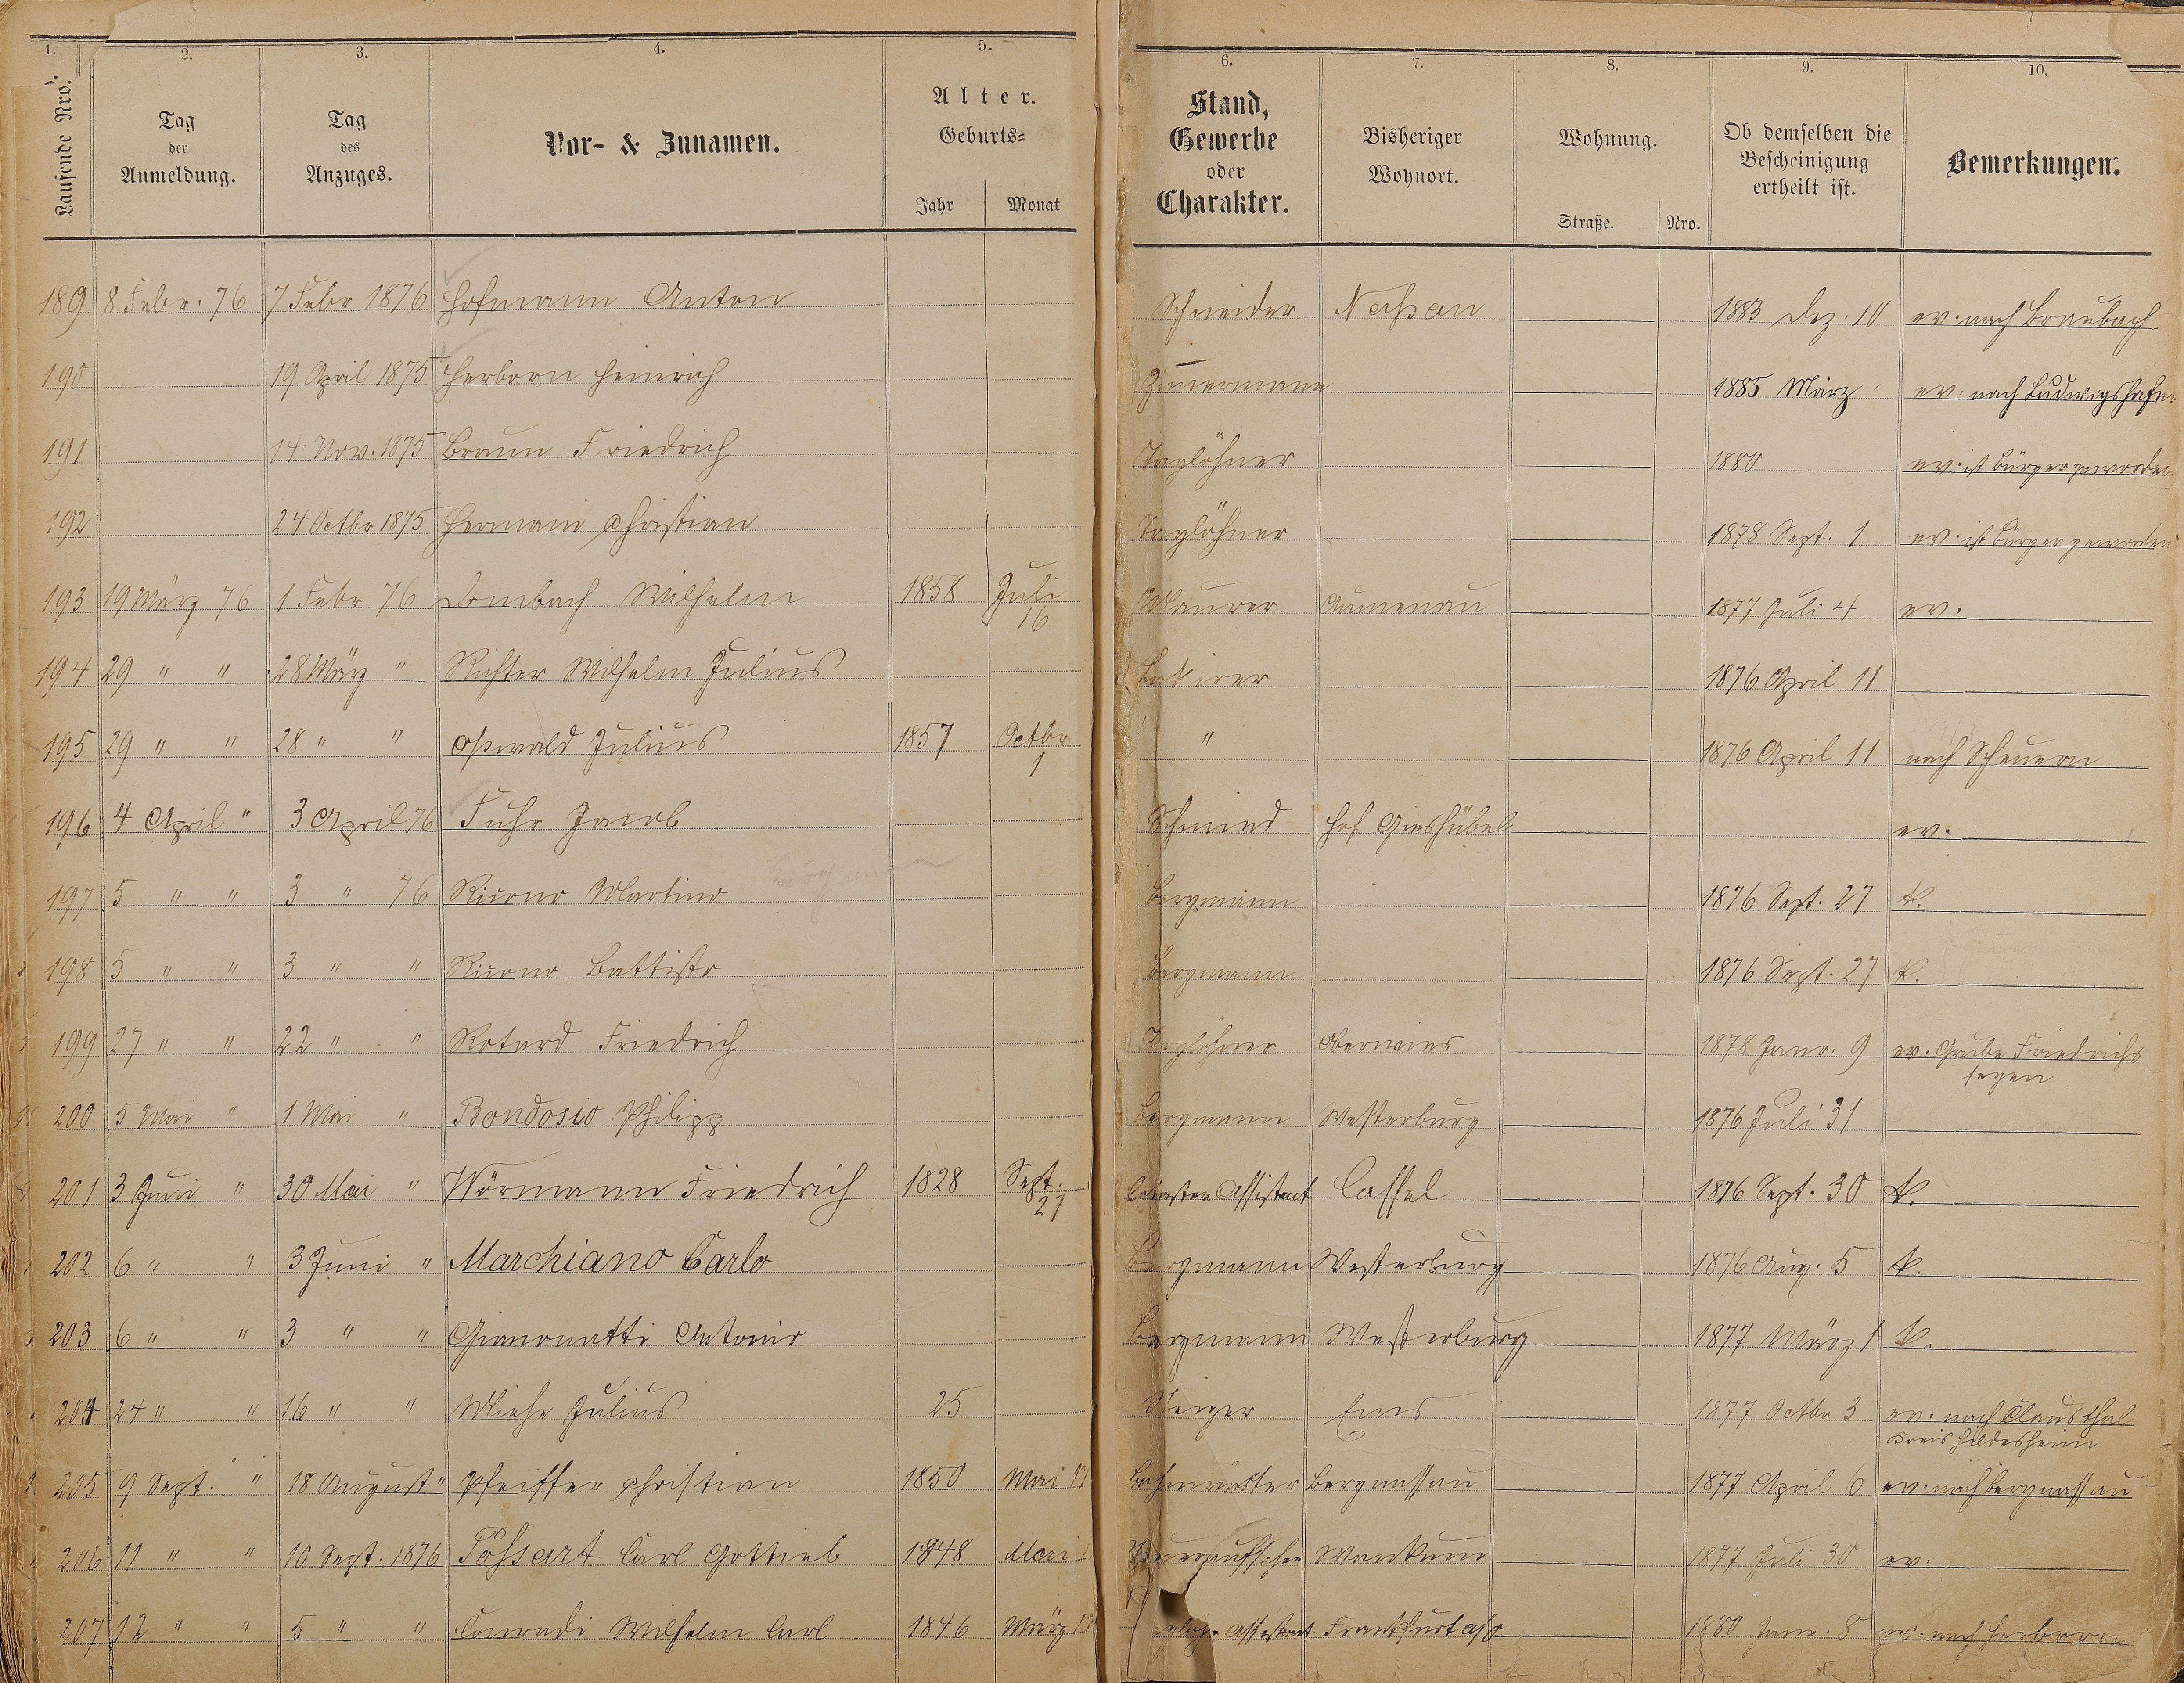 1. 2. 3. 4. 5. 6. 7. 8. 9. 10.
Laufende Nro. Tag der Anmeldung. Tag des Anzuges. Vor- & Zunamen. Alter. Geburts= Jahr Monat Stand, Gewerbe oder Charakter. Bisheriger Wohnort. Wohnung. Straße. Nro. Ob demselben die Bescheinigung ertheilt ist. Bemerkungen.
189 8 Febr. 76 7 Febr 1876 Hofmann Anton Schneider Naßau 1883 Dez. 10 ev. nach Braubach
190 19 April 1875 Herborn Heinrich Zimmermann 1885 März ev. nach Ludwigshafen
191 14 Nov. 1875 Braun Friedrich Taglöhner 1880 ev. ist Bürger geworden
192 24 Octbr 1875 Hermann Christian Taglöhner 1878 Sept. 1 ev. ist Bürger geworden
193 19 März 76 1 Febr 76 Dombach Wilhelm 1858 Juli 16 Maurer Aumenau 1877 Juli 4 ev.
194 29 " " 28 März " Richter Wilhelm Julius 1876 April 11
195 29 " " 28 " " Oßwald Julius 1857 Octbr 1 " 1876 April 11 nach Scheuern
196 4 April " 3 April 76 Fuhr Jacob Schmied Hof Gieshübel ev.
197 5 " " 3 " 76 Martino Bergmann 1876 Sept. 27 k.
198 5 " " 3 " " Battista Bergmann 1876 Sept. 27 k.
199 27 " " 22 " " Rotard Friedrich Taglöhner Oberwies 1878 Janr. 9 ev. Grube Friedrichs
segen
200 5 Mai " 1 Mai " Bondosio Philipp Bergmann Westerburg 1876 Juli 31
201 3 Juni " 30 Mai " Wörmann Friedrich 1828 Sept. 21 Assistent Cassel 1876 Sept. 30 k.
202 6 " " 3 Juni " Marchiano Carlo Bergmann Westerburg 1876 Aug. 5 k.
203 6 " " 3 " " Gianonatti Antonio Bergmann Westerburg 1877 März 1 k.
204 24 " " 16 " " Miehe Julius 25 Steiger Ems 1877 Octbr 3 ev. nach Clausthal
Kreis Hildesheim
205 9 Sept. " 18 August " Pfeiffer Christian 1850 Mai Bahnwärter Bergnassau 1877 April 6 ev. nach Bergnassau
206 11 " " 10 Sept. 1876 Possart Carl Gottlieb 1848 Mai Wankum 1877 Juli 30 ev.
207 12 " " 5 " " Conradi Wilhelm Carl 1846 März Assistent Frankfurt a/o 1880 Janr. 8 ev. nach Herborn